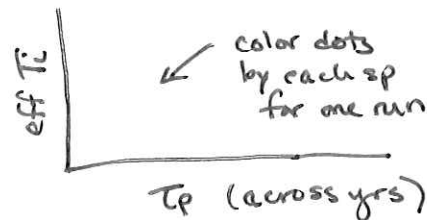 eff τi
color dots
by each sp
for one run
τp (across yrs)